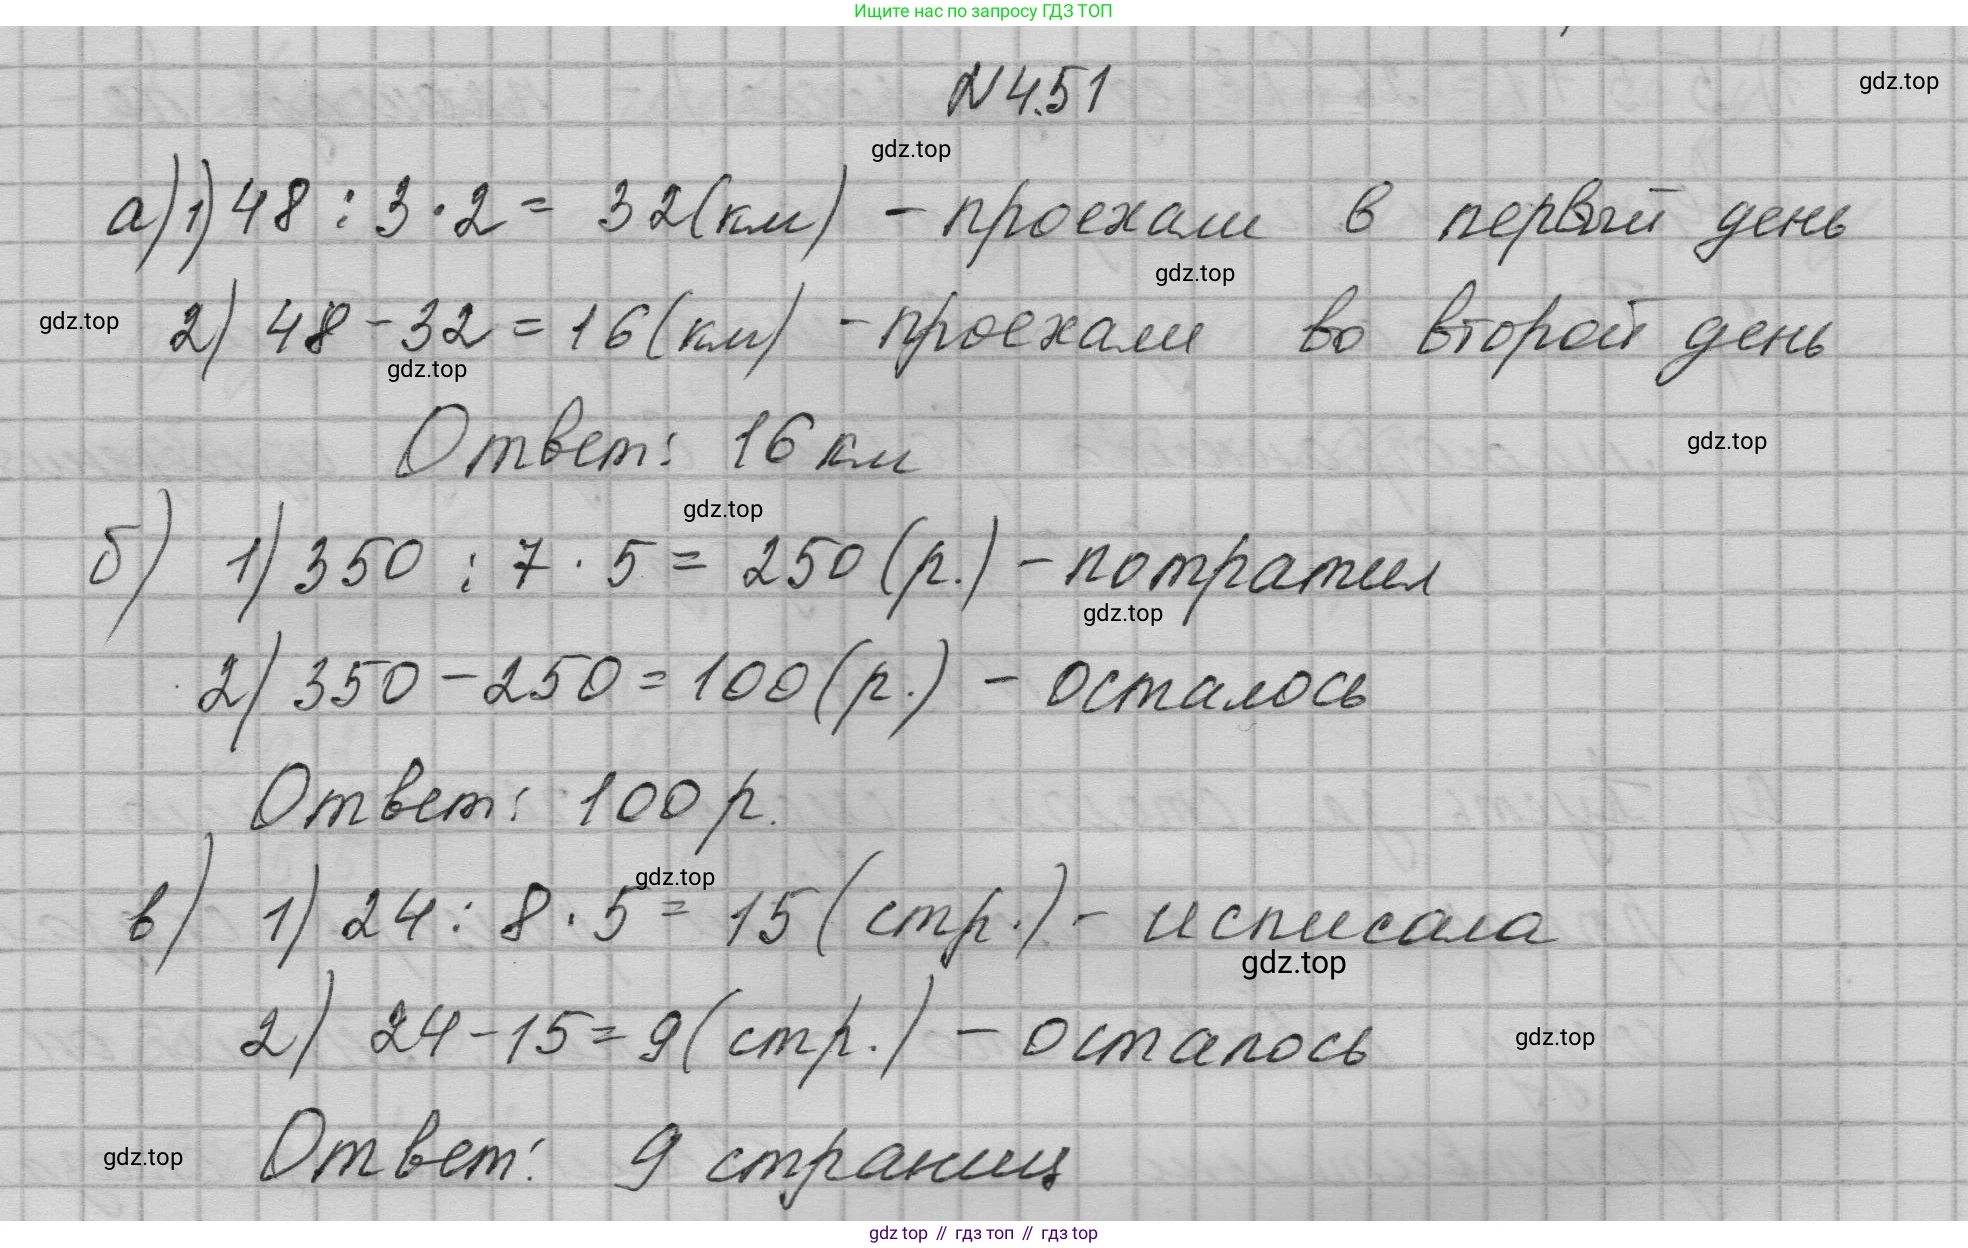 Ищите нас по запросу ГДЗ ТОП
№ 4.51
gdz.top
gdz.top
а) 1) 48 : 3 · 2 = 32 (км) - проехали в первый день
gdz.top
gdz.top
2) 48 - 32 = 16 (км) - проехали во второй день
gdz.top
Ответ: 16 км
gdz.top
gdz.top
б) 1) 350 : 7 · 5 = 250 (р.) - потратил
gdz.top
2) 350 - 250 = 100 (р.) - осталось
Ответ: 100 р.
gdz.top
в) 1) 24 : 8 · 5 = 15 (стр.) - исписала
gdz.top
2) 24 - 15 = 9 (стр.) - осталось
gdz.top
Ответ: 9 страниц
gdz.top
gdz top // гдз топ // гдз top